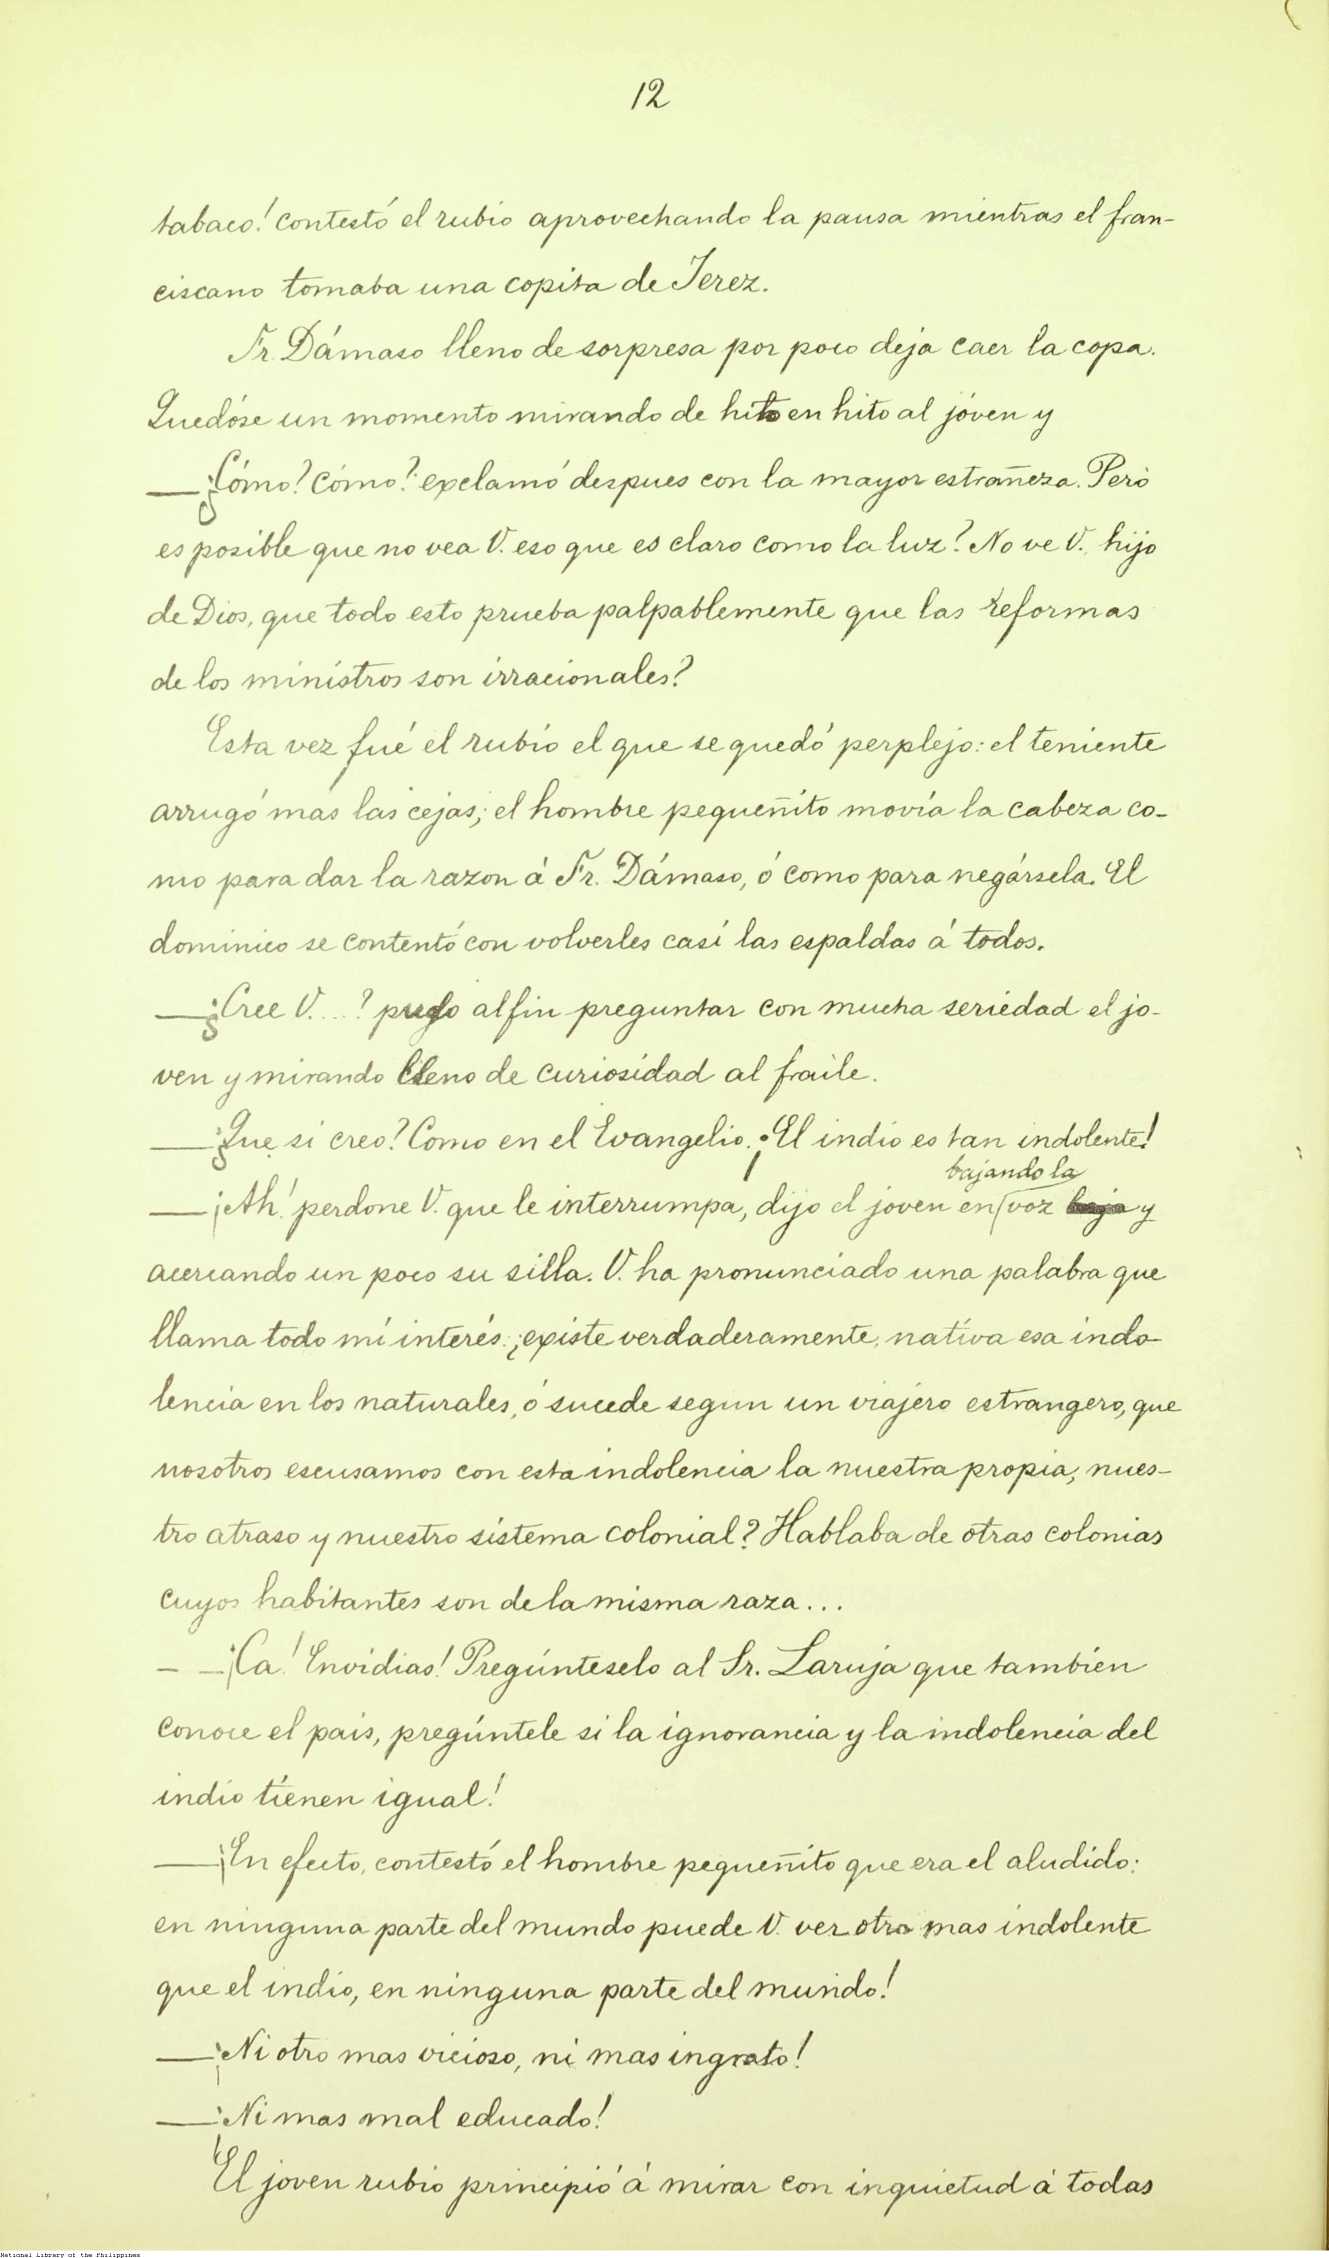 12
tabaco! contestó el rubio aprovechando la pausa mientras el fran-
ciscano tomaba una copita de Jerez.
Fr. Dámaso lleno de sorpresa por poco deja caer la copa.
Quedóse un momento mirando de hito en hito al jóven y
—¿Cómo? cómo? exclamó despues con la mayor estrañeza. Pero
es posible que no vea V. eso que es claro como la luz? No ve V., hijo
de Dios, que todo esto prueba palpablemente que las reformas
de los ministros son irracionales?
Esta vez fué el rubio el que se quedó perplejo: el teniente
arrugó mas las cejas; el hombre pequeñito movía la cabeza co-
mo para dar la razon á Fr. Dámaso, ó como para negársela. El
dominico se contentó con volverles casi las espaldas á todos.
—¿Cree V....? pudo al fin preguntar con mucha seriedad el jo-
ven y mirando lleno de curiosidad al fraile.
—¿Que si creo? Como en el Evangelio. ¡El indio es tan indolente!
bajando la
—¡Ah! perdone V. que le interrumpa, dijo el joven en voz baja y
acercando un poco su silla. V. ha pronunciado una palabra que
llama todo mi interés: ¿existe verdaderamente, nativa esa indo-
lencia en los naturales, ó sucede segun un viajero estrangero, que
nosotros escusamos con esta indolencia la nuestra propia, nues-
tro atraso y nuestro sistema colonial? Hablaba de otras colonias
cuyos habitantes son de la misma raza...
— —¡Ca! Envidias! Pregúnteselo al Sr. Laruja que tambien
conoce el pais, pregúntele si la ignorancia y la indolencia del
indio tienen igual!
—¡En efecto, contestó el hombre pequeñito que era el aludido:
en ninguna parte del mundo puede V. ver otro mas indolente
que el indio, en ninguna parte del mundo!
—¡Ni otro mas vicioso, ni mas ingrato!
—¡Ni mas mal educado!
El joven rubio principió á mirar con inquietud á todas
National Library of the Philippines